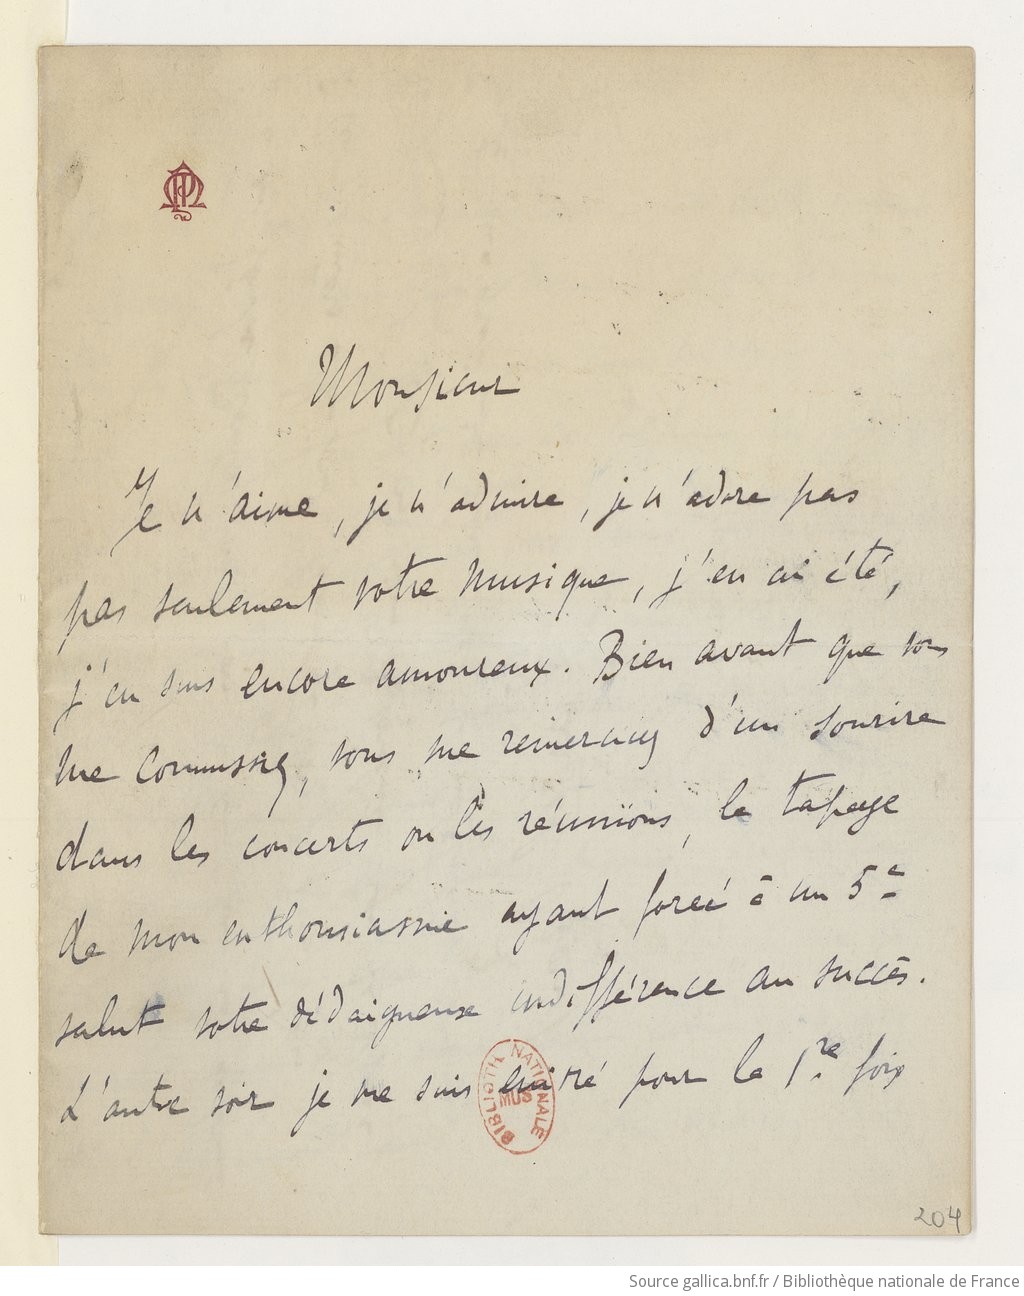 Monsieur
Je n'aime, je n'admire, je n'adore pas
pas seulement votre musique, j'en ai été,
j'en suis encore amoureux. Bien avant que vous
me connussiez, vous me remerciez d'un sourire
dans les concerts ou les réunions, le tapage
de mon enthousiasme ayant forcé à un 5e
salut votre dédaigneuse indifférence au succès.
L'autre soir je me suis enivré pour la 1re fois
BIBLIOTH. NATIONALE
MUS
204
Source gallica.bnf.fr / Bibliothèque nationale de France